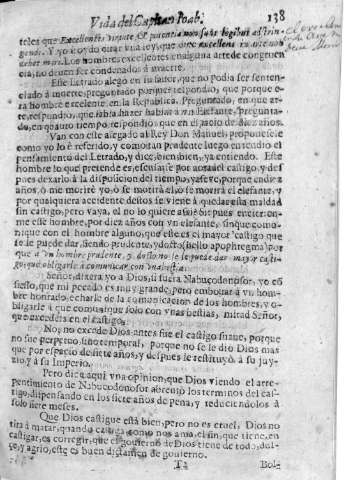 Vida del Capitan Ioab.
138
teles que Excellentes virtute, & potentia non sunt legibus adstrin-
gendi. Y yo è oydo citar vna ley, que vnus excellens in arte non
debet mori. Los hombres excelentes en alguna arte de congruen-
cia, no deuen ser condenados à muerte.
Este Letrado alegò en su fauor, que no podia ser senten-
ciado à muerte, preguntado porque? respondio, que porque e-
ra hombre excelente en la Republica. Preguntado, en que ar-
te, respondio, que sabia hazer hablar à vn Elefante, pregunta-
do, en quanto tiempo, respondio, que en el plaço de diez años.
Van con este alegado al Rey Don Manuel, proponese le
como yo lo è referido, y como tan prudente luego entendio el
pensamiento del Letrado, y dice, bien, bien, ya entiendo. Este
hombre lo que pretende es, escusarse por aora del castigo, y des-
pues dexarlo à la disposicion del tiempo, y à se ve, porque en diez
años, ò me morirè yo, ò se morirà el, ò se morirà el elefante, y
por qualquiera accidente destos se viene à quedar esta maldad
sin castigo, pero vaya, el no lo quiere assi? Pues encierren-
me este hombre, por diez años con vn elefante, sin que comu-
nique con el hombre alguno, que esse es el mayor castigo que
se le puede dar, siendo prudente, y docto, (bello apophtegma) por
que à vn hombre prudente, y docto no se le puede dar mayor casti-
go, que obligarle à comunicar con vna bestia.
Señor, dixera yo à Dios, si fuera Nabucodonosor, yo cõ-
fiesso, que mi pecado es muy grande, pero embiar à vn hom-
bre honrado, echarle de la comunicacion de los hombres, y o-
bligarle à que comunique solo con vnas bestias, mirad Señor,
que excedeis en el castigo.
No, no excede Dios antes fue el castigo suaue, porque
no fue perpetuo, sino temporal, porque no se le dio Dios mas
que por espacio de siete años, y despues le restituyò à su juy-
zio, y à su Imperio.
Pero dice aqui vna opinion, que Dios viendo el arre-
pentimiento de Nabucodonosor abreuiò los terminos del cas-
tigo, dispensando en los siete años de pena, y reduciendolos à
solo siete meses.
Que Dios castigue està bien, pero no es cruel, Dios no
tira à matar, quando castiga como nos ama, el fin que tiene, en
castigar, es corregir, que el gouierno de Dios tiene de todo, dul-
çe, y agrio, este es buen dictamen de gouierno.
Bol-